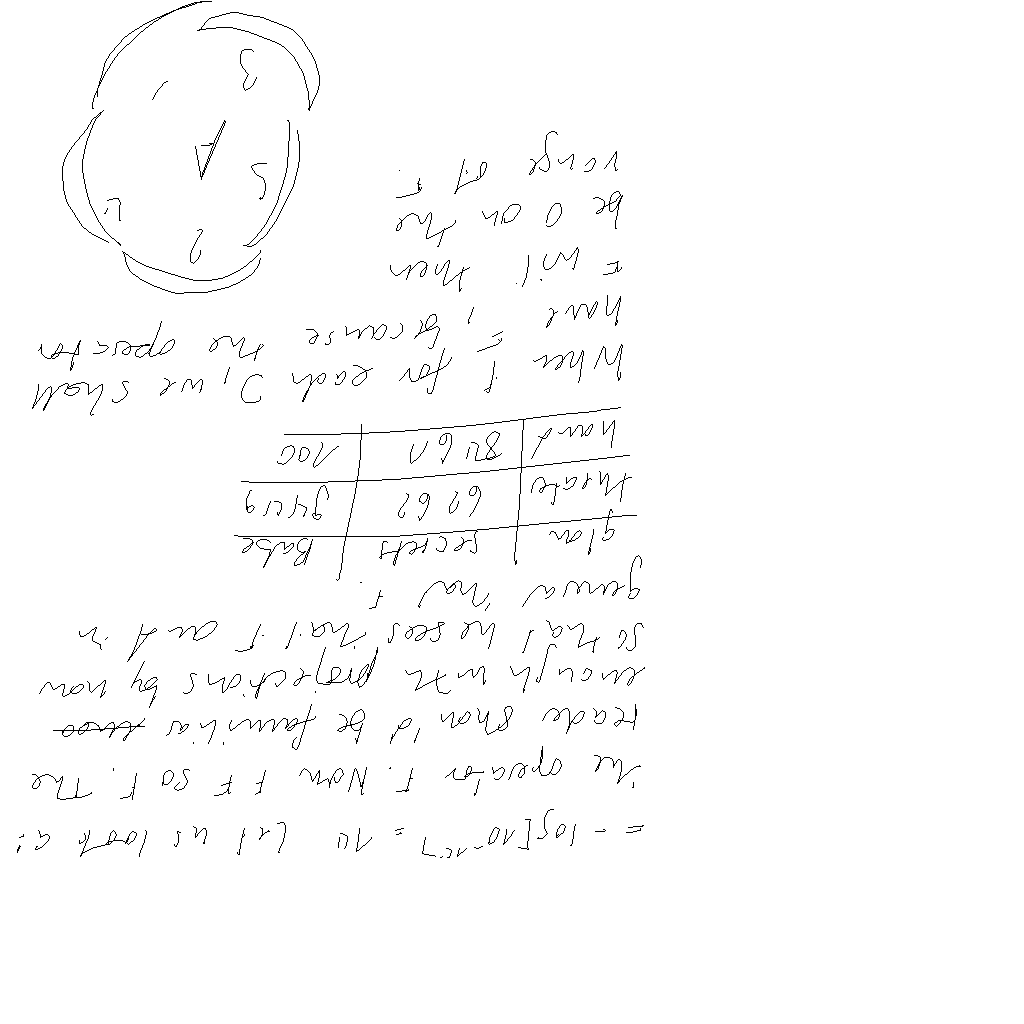 = - log[10 = 14 Let us look
the operator F. Now F F so F. The
reader should be familiar
enough with projections by now
so that he sees that F and in
F.
glan secrets Babe
threate 6262
hand 8461 100
When F for each J, we shall
have = , because the operator
F will then
be 0 on the
range of F
2
5
3